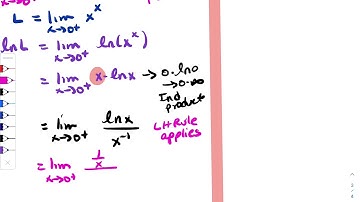 L = lim x→0+ x^x
ln L = lim x→0+ ln(x^x)
= lim x→0+ x·lnx → 0·ln0
→ 0·∞
Ind
product
= lim x→0+ lnx / x^-1 LH Rule
applies
= lim x→0+ 1/x